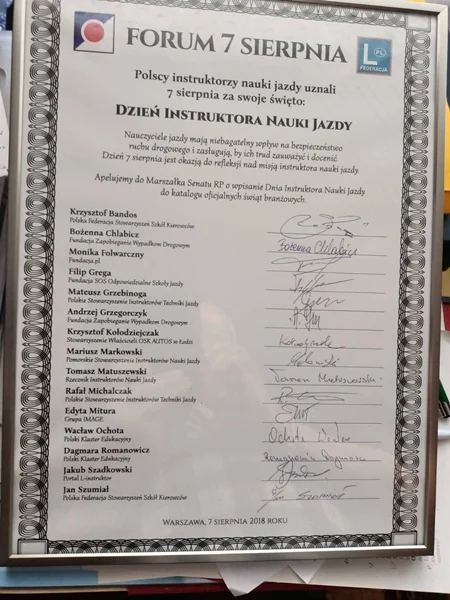 FORUM 7 SIERPNIA
L PL
FEDERACJA
Polscy instruktorzy nauki jazdy uznali
7 sierpnia za swoje święto:
DZIEŃ INSTRUKTORA NAUKI JAZDY
Nauczyciele jazdy mają niebagatelny wpływ na bezpieczeństwo
ruchu drogowego i zasługują, by ich trud zauważyć i docenić.
Dzień 7 sierpnia jest okazją do refleksji nad misją instruktora nauki jazdy.
Apelujemy do Marszałka Senatu RP o wpisanie Dnia Instruktora Nauki Jazdy
do katalogu oficjalnych świąt branżowych.
Krzysztof Bandos
Polska Federacja Stowarzyszeń Szkół Kierowców
Bożenna Chlabicz
Fundacja Zapobieganie Wypadkom Drogowym
Bożenna Chlabicz
Monika Folwarczny
Fundacja.pl
Filip Grega
Fundacja SOS Odpowiedzialne Szkoły Jazdy
Mateusz Grzebinoga
Polskie Stowarzyszenie Instruktorów Techniki Jazdy
Andrzej Grzegorczyk
Fundacja Zapobieganie Wypadkom Drogowym
Krzysztof Kołodziejczak
Stowarzyszenie Właścicieli OSK AUTOS w Łodzi
Mariusz Markowski
Pomorskie Stowarzyszenie Instruktorów Nauki Jazdy
Tomasz Matuszewski
Rzecznik Instruktorów Nauki Jazdy
Tomasz Matuszewski
Rafał Michalczak
Polskie Stowarzyszenie Instruktorów Techniki Jazdy
Edyta Mitura
Grupa IMAGE
Wacław Ochota
Polski Klaster Edukacyjny
Ochota Wacław
Dagmara Romanowicz
Polski Klaster Edukacyjny
Romanowicz Dagmara
Jakub Szadkowski
Portal L-instruktor
Jan Szumiał
Polska Federacja Stowarzyszeń Szkół Kierowców
Jan Szumiał
WARSZAWA, 7 SIERPNIA 2018 ROKU